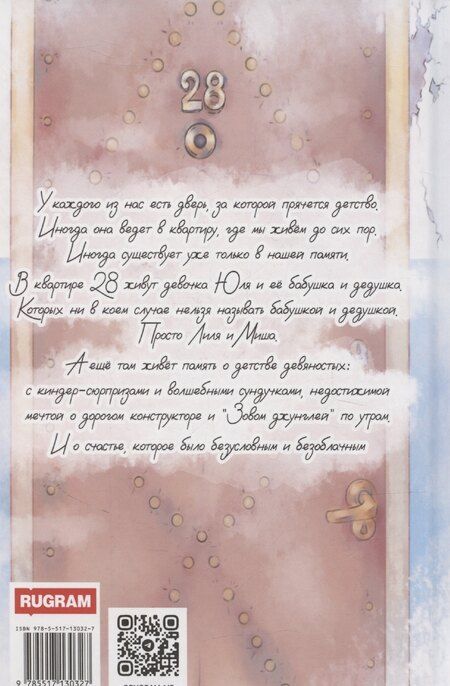 28
У каждого из нас есть дверь, за которой прячется детство.
Иногда она ведет в квартиру, где мы живём до сих пор.
Иногда существует уже только в нашей памяти.
В квартире 28 живут девочка Юля и её бабушка и дедушка.
Которых ни в коем случае нельзя называть бабушкой и дедушкой.
Просто Лиля и Миша.
А ещё там живёт память о детстве девяностых:
с киндер-сюрпризами и волшебными сундучками, недостижимой
мечтой о дорогом конструкторе и "Зовом джунглей" по утрам.
И о счастье, которое было безусловным и безоблачным
RUGRAM
ISBN 978-5-517-13032-7
9 785517 130327